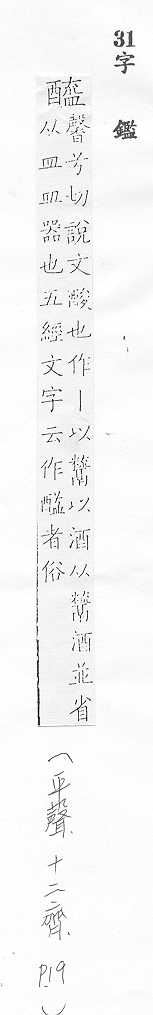 31
字 鑑
醯
馨兮切說文酸也作丨以鬻以酒从鬻酒並省
从皿皿器也五經文字云作醯者俗
(平聲、十二齊、P.19)